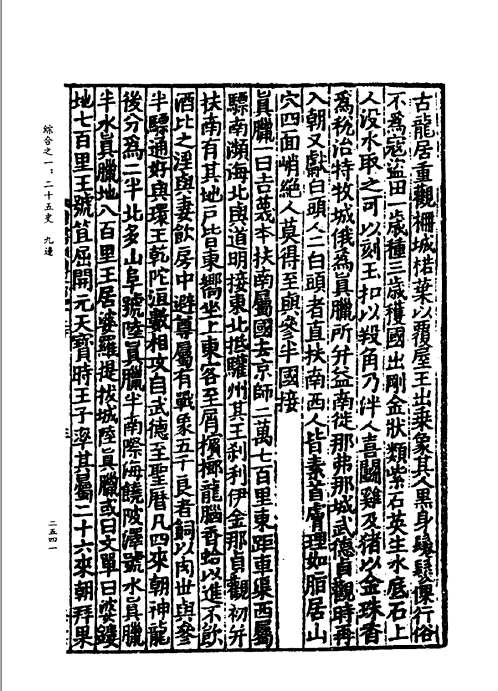 古龍居重觀柵城楛葉以覆屋王出乘象其人黑身鬈髮倮行俗
不爲寇盜田一歲種三歲穫國出剛金狀類紫石英生水底石上
人沒水取之可以刻王扣以羖角乃泮人喜鬭雞及猪以金珠香
爲稅治特牧城俄爲眞臘所并益南徙那弗那城武德貞觀時再
入朝又獻白頭人二白頭者直扶南西人皆素首膚理如脂居山
穴四面峭絕人莫得至與參半國接
眞臘一曰吉蔑本扶南屬國去京師二萬七百里東距車渠西屬
驃南瀕海北與道明接東北抵驩州其王刹利伊金那貞觀初并
扶南有其地戶皆東嚮坐上東客至屑檳榔龍腦香蛤以進不飲
酒比之淫與妻飲房中避尊屬有戰象五千良者飼以肉世與參
半驃通好與環王乾陀洹數相攻自武德至聖曆凡四來朝神龍
後分爲二半北多山阜號陸眞臘半南際海饒陂澤號水眞臘
半水眞臘地八百里王居婆羅提拔城陸眞臘或曰文單曰婆鏤
地七百里王號䇕屈開元天寶時王子率其屬二十六來朝拜果
綜合之一：二十五史 九邊
二五四一